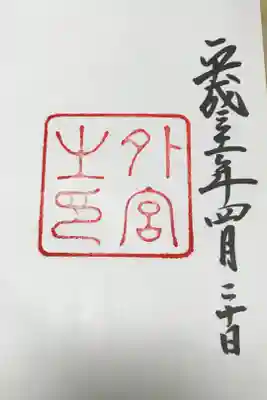 平成三十一年四月二十日
外宮
之印